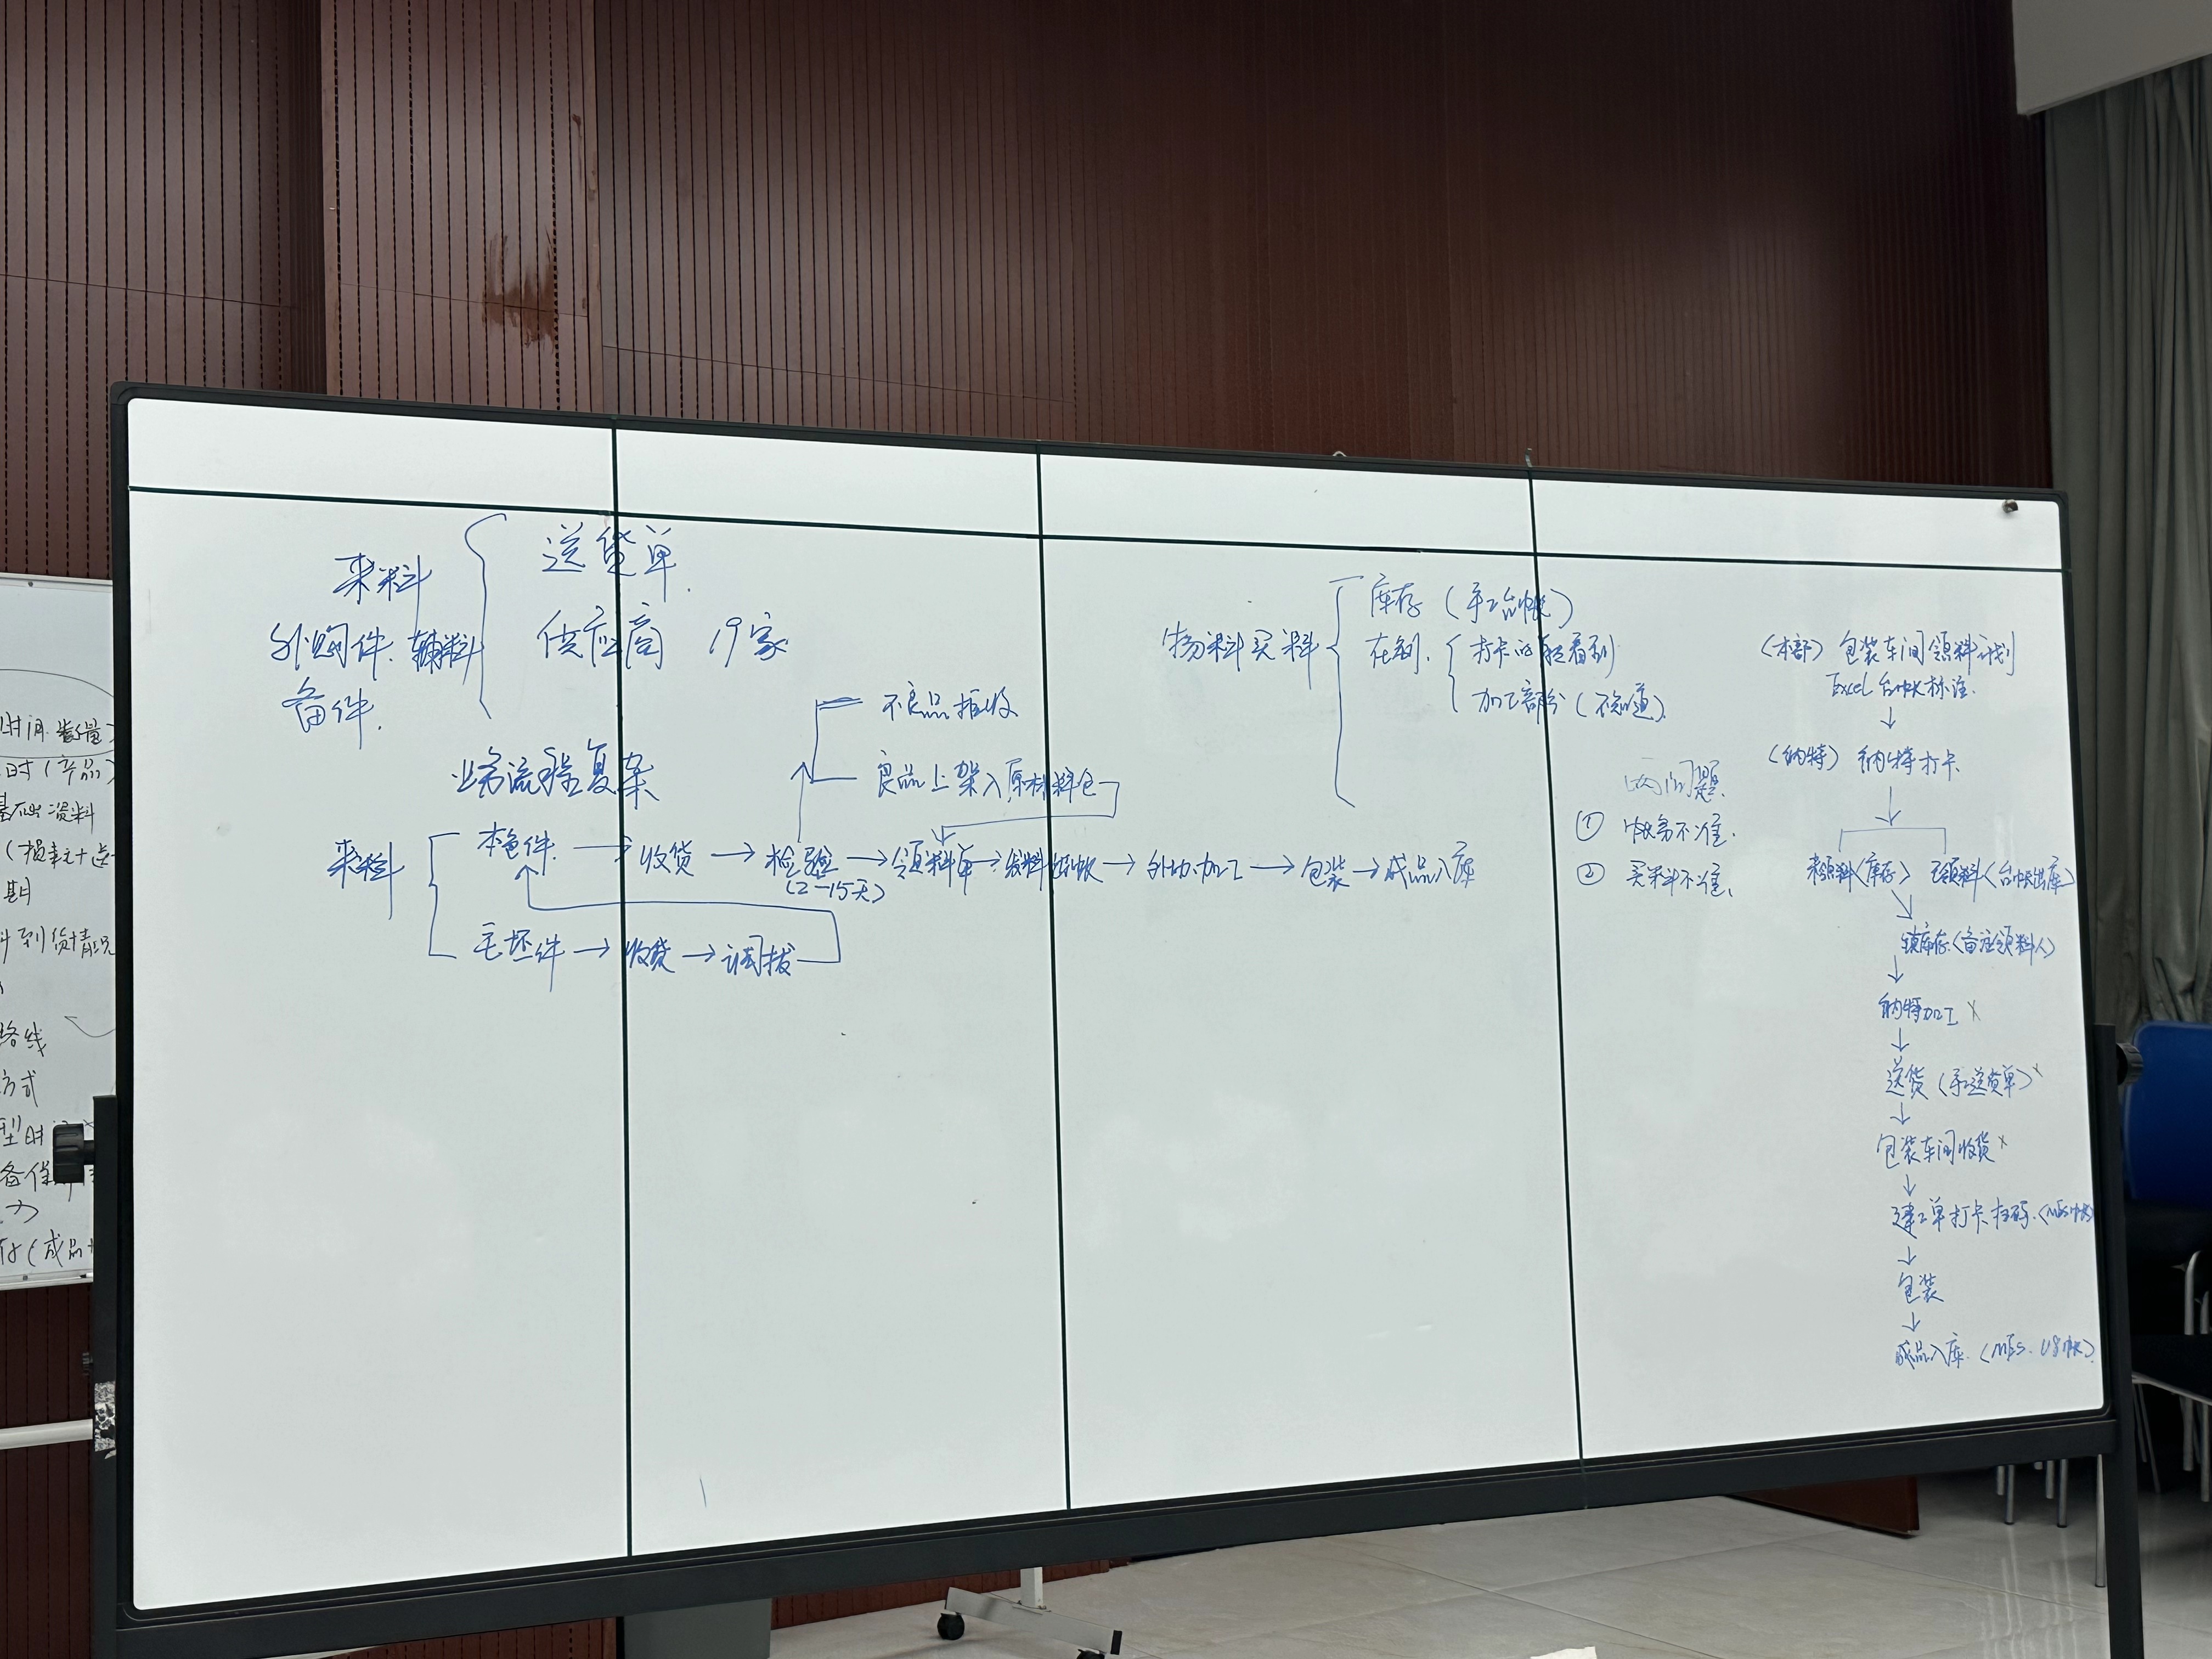 来料
外购件、辅料
备件.
送货单.
供应商 19家
业务流程复杂
不良品拒收
良品上架入原材料仓
来料
本色件 → 收货 → 检验 → 领料单 → 发料 → 外协加工 → 包装 → 成品入库
(2-15天)
毛坯件 → 收货 → 调拨
物料买料
库存 (手工台帐)
在制.
打卡的能看到
加工部分 (不知道).
两问题
① 帐务不准.
② 买料不准.
(本部) 包装车间领料计划
Excel台帐标注.
↓
(纳特) 纳特打卡
↓
未领料(库存) 已领料(台帐出库)
锁库存(备注领料人)
↓
纳特加工 x
↓
送货 (手工送货单) x
↓
包装车间收货 x
↓
建工单打卡扫码.(MES帐)
↓
包装
↓
成品入库. (MES. U8帐).
时间 数量)
基础资料
期
料到货情况
路线
方式
存(成品